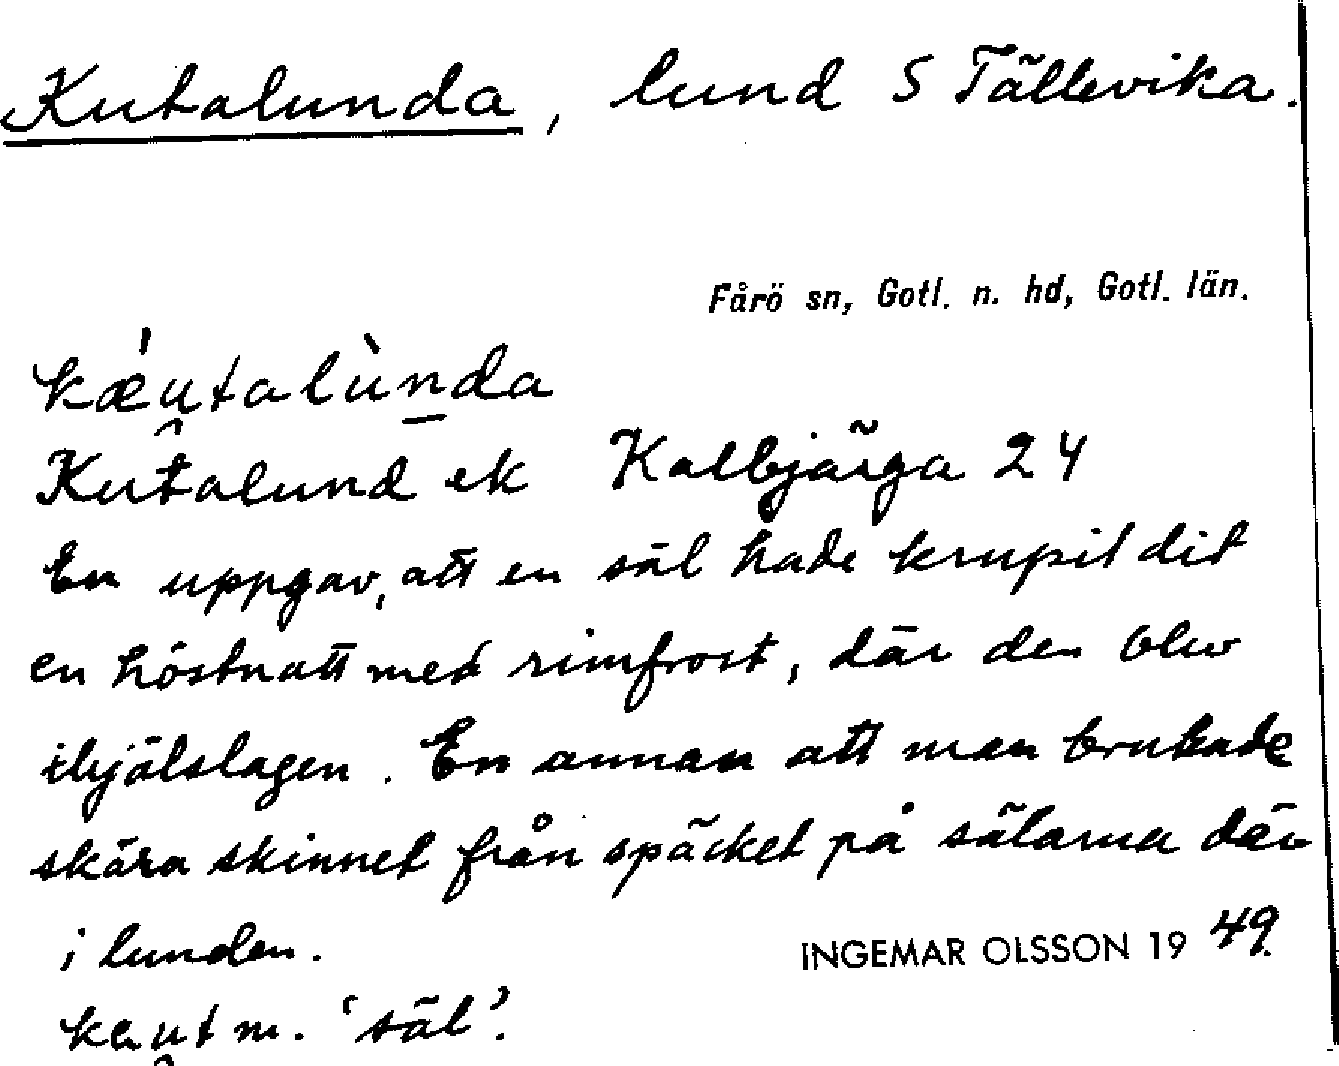 Kutalunda, lund S Tällevika.
Fårö sn, Gotl. n. hd, Gotl. län.
kǽu̯talùn̲da
Kutalund ek Kalbjärga 24
En uppgav, att en säl hade krupit dit
en höstnatt med rimfrost, där den blev
ihjälslagen. En annan att man brukade
skära skinnet från späcket på sälarna där
i lunden.
INGEMAR OLSSON 1949.
kau̯t m. 'säl'.